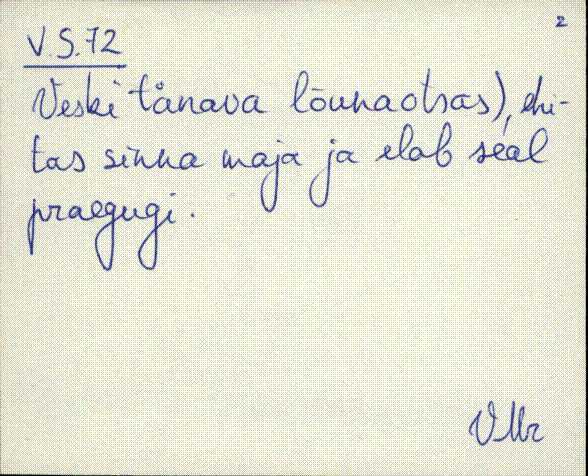 2
V.S.72
Veski tänava lõunaotsas), ehi-
tas sinna maja ja elab seal
praegugi.